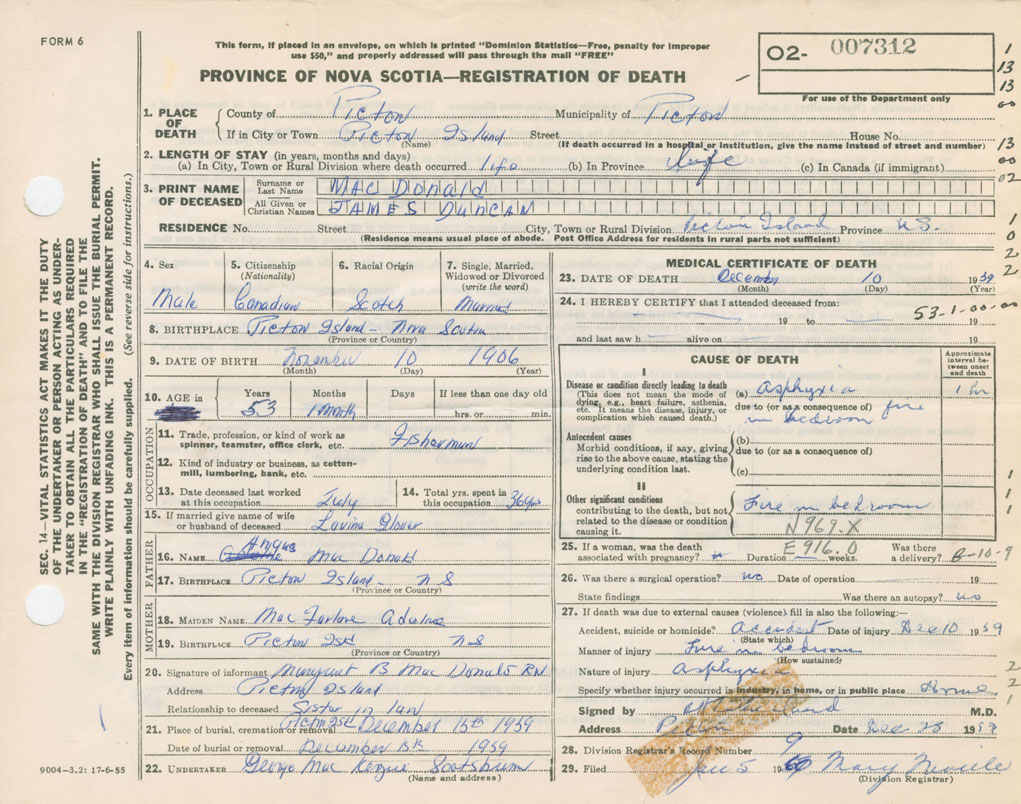 FORM 6
This form, if placed in an envelope, on which is printed "Dominion Statistics—Free, penalty for improper
use $50," and properly addressed will pass through the mail "FREE"
PROVINCE OF NOVA SCOTIA—REGISTRATION OF DEATH
O2- 007312
For use of the Department only
1
13
13
00
13
00
02
1
0
2
2
1. PLACE OF DEATH
County of Pictou Municipality of Pictou
If in City or Town Pictou Island Street House No.
(Name) (If death occurred in a hospital or institution, give the name instead of street and number)
2. LENGTH OF STAY (in years, months and days)
(a) In City, Town or Rural Division where death occurred life (b) In Province Life (c) In Canada (if immigrant)
3. PRINT NAME OF DECEASED
Surname or Last Name MAC Donald
All Given or Christian Names JAMES DUNCAN
RESIDENCE No. Street City, Town or Rural Division Pictou Island Province N.S.
(Residence means usual place of abode. Post Office Address for residents in rural parts not sufficient)
4. Sex 5. Citizenship (Nationality) 6. Racial Origin 7. Single, Married, Widowed or Divorced (write the word)
Male Canadian Scotch Married
8. BIRTHPLACE Pictou Island - Nova Scotia
(Province or Country)
9. DATE OF BIRTH November 10 1906
(Month) (Day) (Year)
10. AGE in Years Months Days If less than one day old
53 1 month hrs. or min.
OCCUPATION
11. Trade, profession, or kind of work as
spinner, teamster, office clerk, etc. Fisherman
12. Kind of industry or business, as cotton-
mill, lumbering, bank, etc.
13. Date deceased last worked
at this occupation July
14. Total yrs. spent in
this occupation 36 yrs
15. If married give name of wife
or husband of deceased Lavina Glover
FATHER
16. NAME Angus Mac Donald
17. BIRTHPLACE Pictou Island - N S
(Province or Country)
MOTHER
18. MAIDEN NAME Mac Farlane Adeline
19. BIRTHPLACE Pictou Isd N S
(Province or Country)
20. Signature of informant Margaret B Mac Donald RN
Address Pictou Island
Relationship to deceased Sister in law
21. Place of burial, cremation or removal Pictou Isd December 15th 1959
Date of burial or removal December 15th 1959
22. UNDERTAKER George Mac Kenzie Scotsburn
(Name and address)
9004-3.2: 17-6-55
MEDICAL CERTIFICATE OF DEATH
23. DATE OF DEATH December 10 1959
(Month) (Day) (Year)
24. I HEREBY CERTIFY that I attended deceased from:
53-1-00-00
19 to 19
and last saw h alive on 19
CAUSE OF DEATH
Approximate interval between onset and death
I
Disease or condition directly leading to death
(This does not mean the mode of
dying, e.g., heart failure, asthenia,
etc. It means the disease, injury, or
complication which caused death.)
(a) Asphyxia 1 hr
due to (or as a consequence of) fire
in bedroom
Antecedent causes
Morbid conditions, if any, giving
rise to the above cause, stating the
underlying condition last.
(b)
due to (or as a consequence of)
(c)
II
Other significant conditions
contributing to the death, but not
related to the disease or condition
causing it.
Fire in bedroom
N969.X
E916.0
25. If a woman, was the death
associated with pregnancy? Duration weeks. Was there
a delivery? B-10-9
26. Was there a surgical operation? no Date of operation 19
State findings Was there an autopsy? no
27. If death was due to external causes (violence) fill in also the following:—
Accident, suicide or homicide? Accident Date of injury Dec 10 1959
(State which)
Manner of injury Fire in bedroom
(How sustained)
Nature of injury Asphyxia
Specify whether injury occurred in industry, in home, or in public place Home
Signed by M.D.
Address Pictou Date Dec 23 1959
28. Division Registrar's Record Number 9
29. Filed Jan 5 1960 Mary
(Division Registrar)
1
1
1
2
2
1
SEC. 14—VITAL STATISTICS ACT MAKES IT THE DUTY
OF THE UNDERTAKER OR PERSON ACTING AS UNDER-
TAKER TO OBTAIN ALL THE PARTICULARS REQUIRED
IN THE "REGISTRATION OF DEATH" AND TO FILE THE
SAME WITH THE DIVISION REGISTRAR WHO SHALL ISSUE THE BURIAL PERMIT.
WRITE PLAINLY WITH UNFADING INK. THIS IS A PERMANENT RECORD.
Every item of information should be carefully supplied. (See reverse side for instructions.)